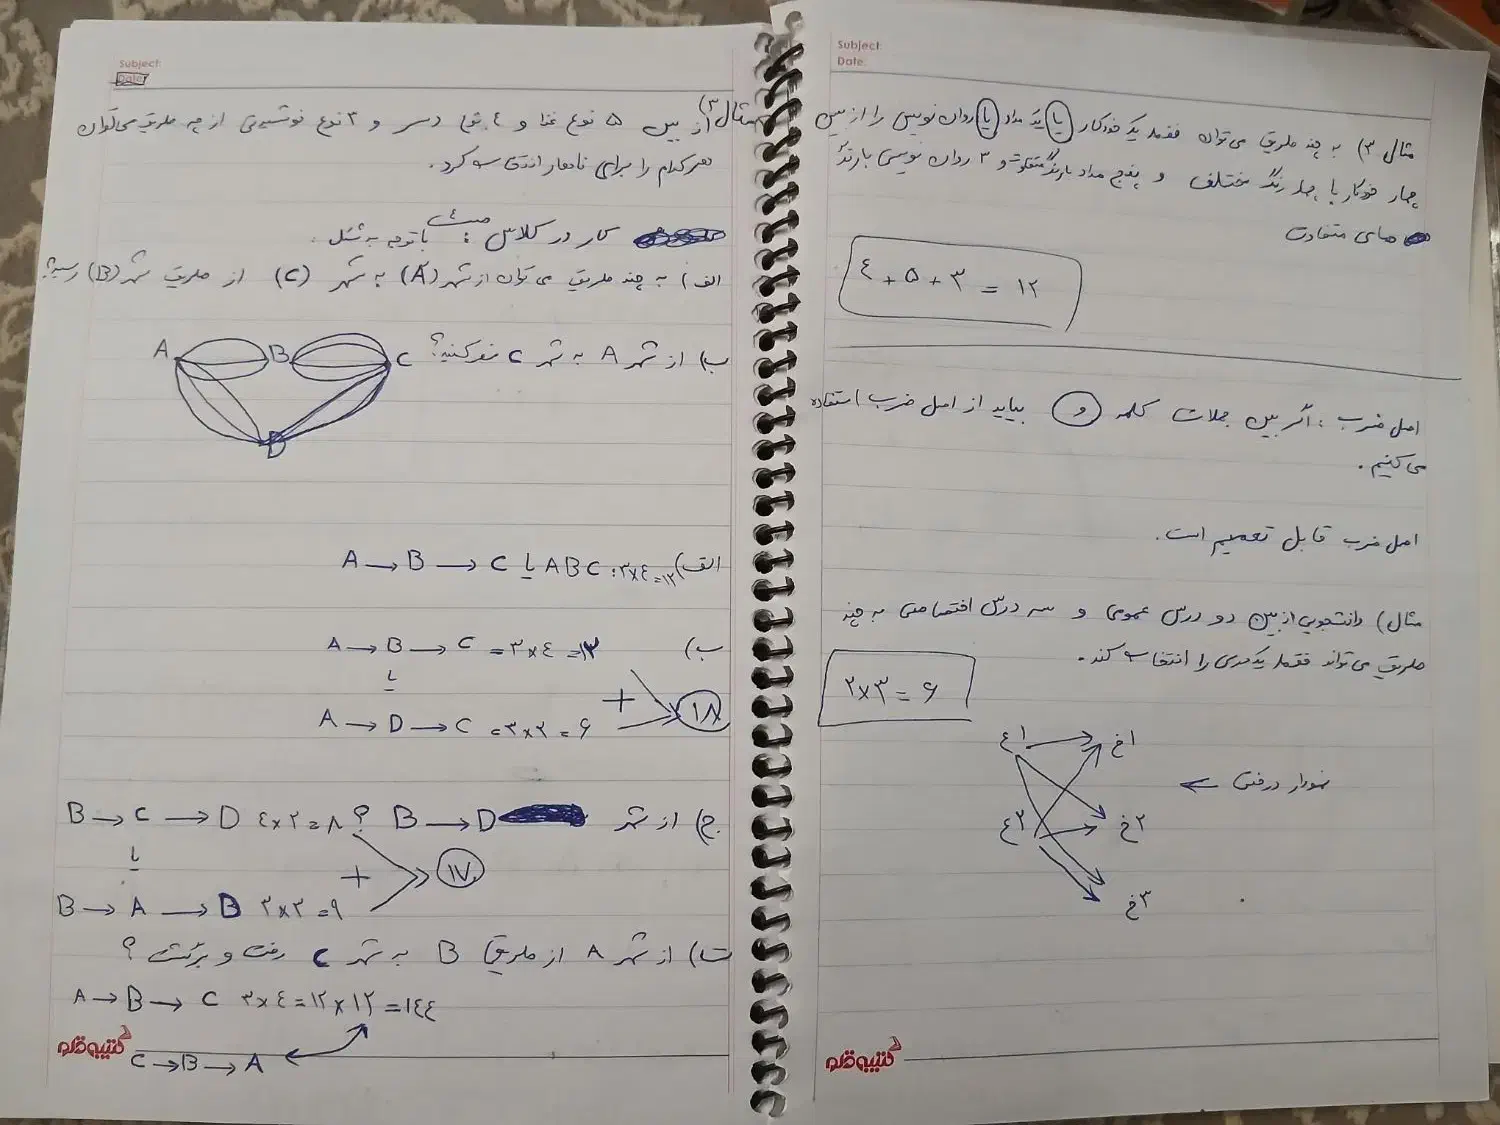 Subject:
Date:
مثال ۳) به چند طریق می‌توان فقط یک خودکار یا یک مداد یا روان نویس را از بین
چهار خودکار با چهار رنگ مختلف و پنج مداد با رنگ متفاوت و ۳ روان نویس با رنگ
های متفاوت
٤ + ۵ + ۳ = ۱۲
اصل ضرب : اگر بین جملات کلمه و بیاید از اصل ضرب استفاده
می کنیم .
اصل ضرب قابل تعمیم است.
مثال) دانشجویی از بین دو درس عمومی و سه درس اختصاصی به چند
طریق می تواند فقط یک را انتخاب کند .
۲×۳ = ۶
ع۱ → خ۱
نمودار درختی ←
ع۲ خ۲
خ۳
کتیبه قلم
Subject:
Date:
مثال ۳) از بین ۵ نوع غذا و ٤ نوع دسر و ۳ نوع نوشیدنی از چه طریق می‌توان
هر کدام را برای ناهار انتخاب کرد .
کار در کلاس : با توجه به شکل .
الف) به چند طریق می توان از شهر (A) به شهر (C) از طریق شهر (B) رسید؟
ب) از شهر A به شهر C سفر کنید؟
A B C
D
الف) A → B → C یا ABC : ۳×٤=۱۲
ب) A → B → C = ۳×٤ = ۱۲
یا
+ ۱۸
A → D → C = ۳×۲ = ۶
ج) از شهر B → D ؟ B → C → D ٤×۲=۸
یا
+ ۱۷
B → A → B ۳×۳=۹
ت) از شهر A از طریق B به شهر C رفت و برگشت ؟
A → B → C ۳×٤=۱۲×۱۲=۱٤٤
C → B → A
کتیبه قلم